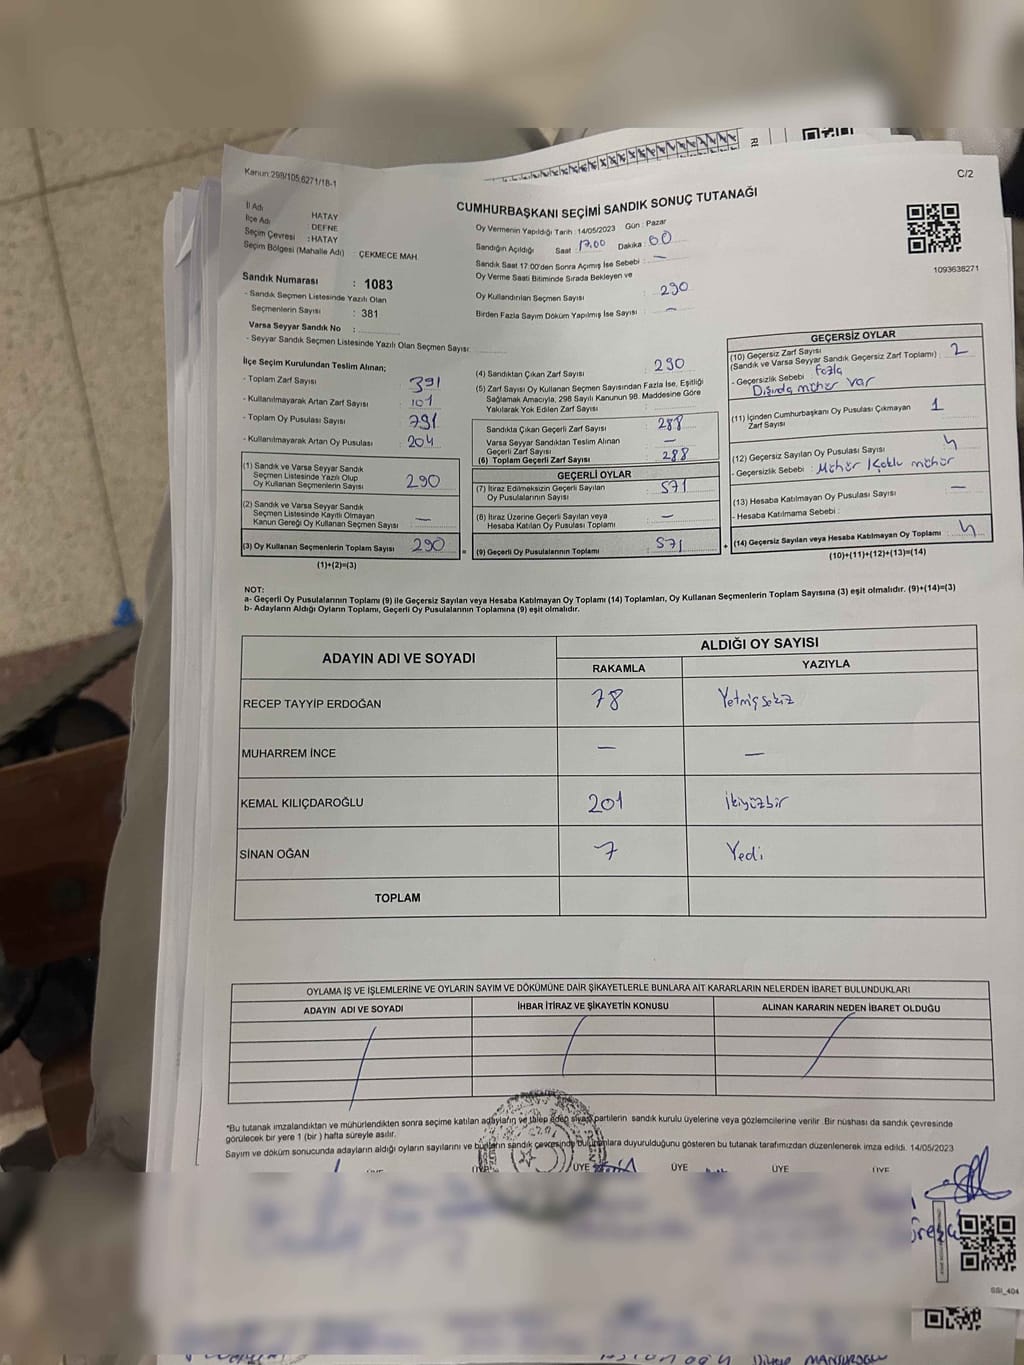 Kanun:298/105,6271/18-1
C/2
CUMHURBAŞKANI SEÇİMİ SANDIK SONUÇ TUTANAĞI
İl Adı HATAY
İlçe Adı DEFNE
Seçim Çevresi : HATAY
Seçim Bölgesi (Mahalle Adı) : ÇEKMECE MAH.
Sandık Numarası : 1083
- Sandık Seçmen Listesinde Yazılı Olan
Seçmenlerin Sayısı : 381
Varsa Seyyar Sandık No :
- Seyyar Sandık Seçmen Listesinde Yazılı Olan Seçmen Sayısı:
Oy Vermenin Yapıldığı Tarih : 14/05/2023 Gün : Pazar
Sandığın Açıldığı Saat : 17.00 Dakika : 00
Sandık Saat 17:00'den Sonra Açımış İse Sebebi : —
Oy Verme Saati Bitiminde Sırada Bekleyen ve
Oy Kullandırılan Seçmen Sayısı : 290
Birden Fazla Sayım Döküm Yapılmış İse Sayısı : —
1093638271
İlçe Seçim Kurulundan Teslim Alınan;
- Toplam Zarf Sayısı : 391
- Kullanılmayarak Artan Zarf Sayısı : 101
- Toplam Oy Pusulası Sayısı : 791
- Kullanılmayarak Artan Oy Pusulası : 204
(1) Sandık ve Varsa Seyyar Sandık
Seçmen Listesinde Yazılı Olup
Oy Kullanan Seçmenlerin Sayısı : 290
(2) Sandık ve Varsa Seyyar Sandık
Seçmen Listesinde Kayıtlı Olmayan
Kanun Gereği Oy Kullanan Seçmen Sayısı : —
(3) Oy Kullanan Seçmenlerin Toplam Sayısı : 290
(1)+(2)=(3)
(4) Sandıktan Çıkan Zarf Sayısı : 290
(5) Zarf Sayısı Oy Kullanan Seçmen Sayısından Fazla İse, Eşitliği
Sağlamak Amacıyla, 298 Sayılı Kanunun 98. Maddesine Göre
Yakılarak Yok Edilen Zarf Sayısı :
Sandıkta Çıkan Geçerli Zarf Sayısı : 288
Varsa Seyyar Sandıktan Teslim Alınan
Geçerli Zarf Sayısı : —
(6) Toplam Geçerli Zarf Sayısı : 288
GEÇERLİ OYLAR
(7) İtiraz Edilmeksizin Geçerli Sayılan
Oy Pusulalarının Sayısı : 571
(8) İtiraz Üzerine Geçerli Sayılan veya
Hesaba Katılan Oy Pusulası Toplamı : —
(9) Geçerli Oy Pusulalarının Toplamı : 571
GEÇERSİZ OYLAR
(10) Geçersiz Zarf Sayısı
(Sandık ve Varsa Seyyar Sandık Geçersiz Zarf Toplamı) : 2
- Geçersizlik Sebebi : Fazla
Dışında mühür var
(11) İçinden Cumhurbaşkanı Oy Pusulası Çıkmayan
Zarf Sayısı : 1
(12) Geçersiz Sayılan Oy Pusulası Sayısı : 4
- Geçersizlik Sebebi : Mühür mühür
(13) Hesaba Katılmayan Oy Pusulası Sayısı : —
- Hesaba Katılmama Sebebi :
(14) Geçersiz Sayılan veya Hesaba Katılmayan Oy Toplamı : 4
(10)+(11)+(12)+(13)=(14)
NOT:
a- Geçerli Oy Pusulalarının Toplamı (9) ile Geçersiz Sayılan veya Hesaba Katılmayan Oy Toplamı (14) Toplamları, Oy Kullanan Seçmenlerin Toplam Sayısına (3) eşit olmalıdır. (9)+(14)=(3)
b- Adayların Aldığı Oyların Toplamı, Geçerli Oy Pusulalarının Toplamına (9) eşit olmalıdır.
ADAYIN ADI VE SOYADI ALDIĞI OY SAYISI
RAKAMLA YAZIYLA
RECEP TAYYİP ERDOĞAN 78 Yetmişsekiz
MUHARREM İNCE — —
KEMAL KILIÇDAROĞLU 201 İkiyüzbir
SİNAN OĞAN 7 Yedi
TOPLAM
OYLAMA İŞ VE İŞLEMLERİNE VE OYLARIN SAYIM VE DÖKÜMÜNE DAİR ŞİKAYETLERLE BUNLARA AİT KARARLARIN NELERDEN İBARET BULUNDUKLARI
ADAYIN ADI VE SOYADI İHBAR İTİRAZ VE ŞİKAYETİN KONUSU ALINAN KARARIN NEDEN İBARET OLDUĞU
*Bu tutanak imzalandıktan ve mühürlendikten sonra seçime katılan adayların ve talep eden siyasi partilerin sandık kurulu üyelerine veya gözlemcilerine verilir. Bir nüshası da sandık çevresinde
görülecek bir yere 1 (bir ) hafta süreyle asılır.
Sayım ve döküm sonucunda adayların aldığı oyların sayılarını ve bunların sandık çevresinde bulunanlara duyurulduğunu gösteren bu tutanak tarafımızdan düzenlenerek imza edildi. 14/05/2023
ÜYE ÜYE ÜYE ÜYE
SSI_404